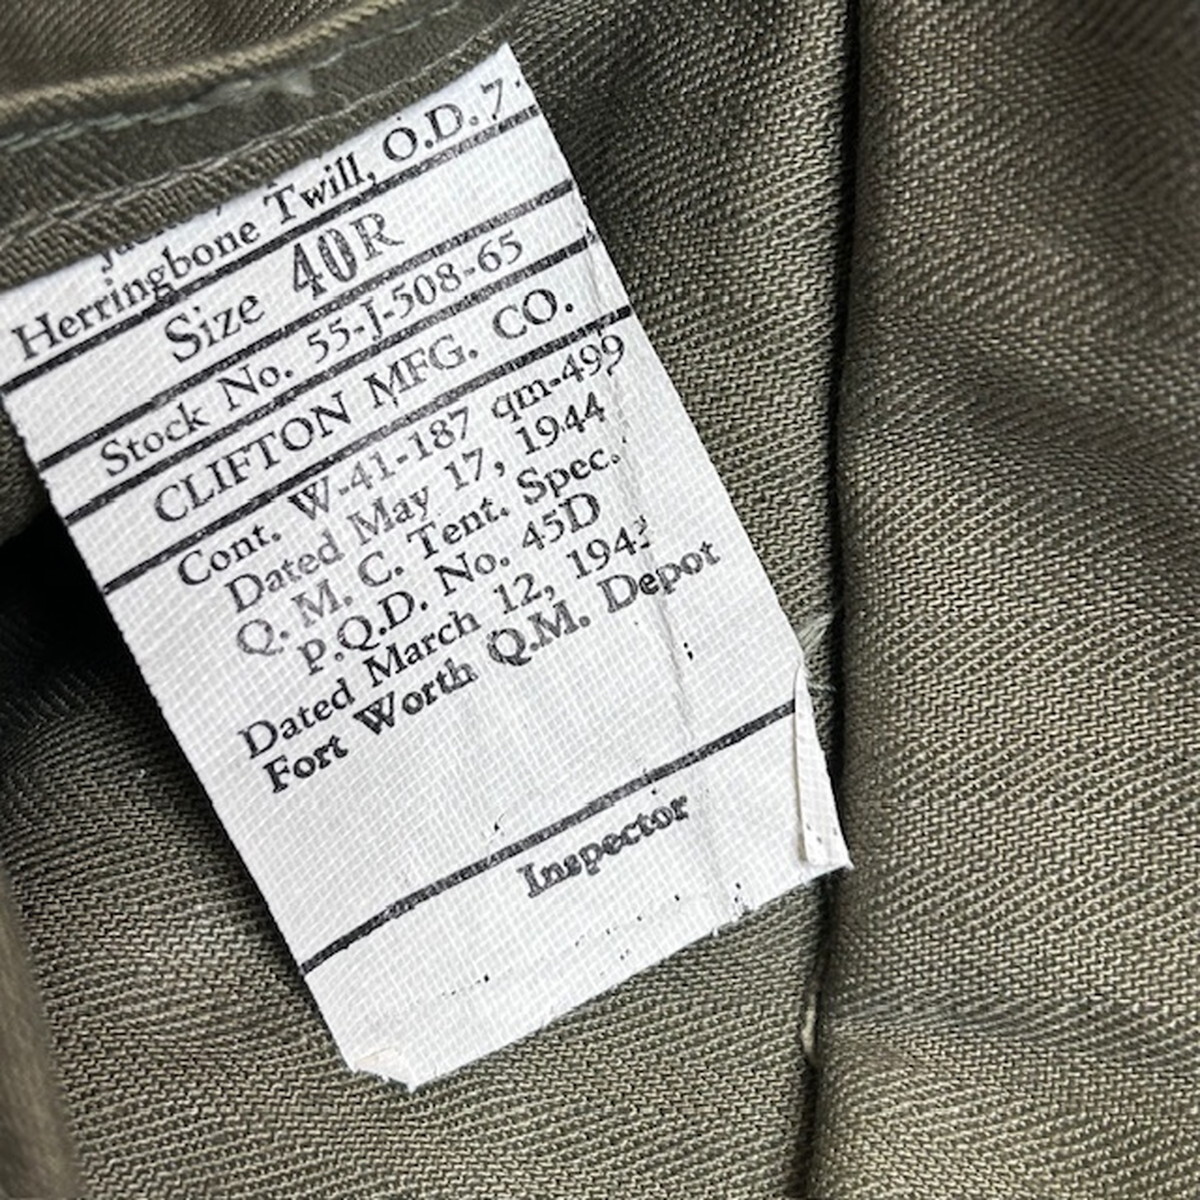 Herringbone Twill, O.D. 7.
Size 40R
Stock No. 55-J-508-65
CLIFTON MFG. CO.
Cont. W-41-187 qm-499
Dated May 17, 1944
Q. M. C. Tent. Spec.
P.Q.D. No. 45D
Dated March 12, 1943
Fort Worth Q.M. Depot
Inspector